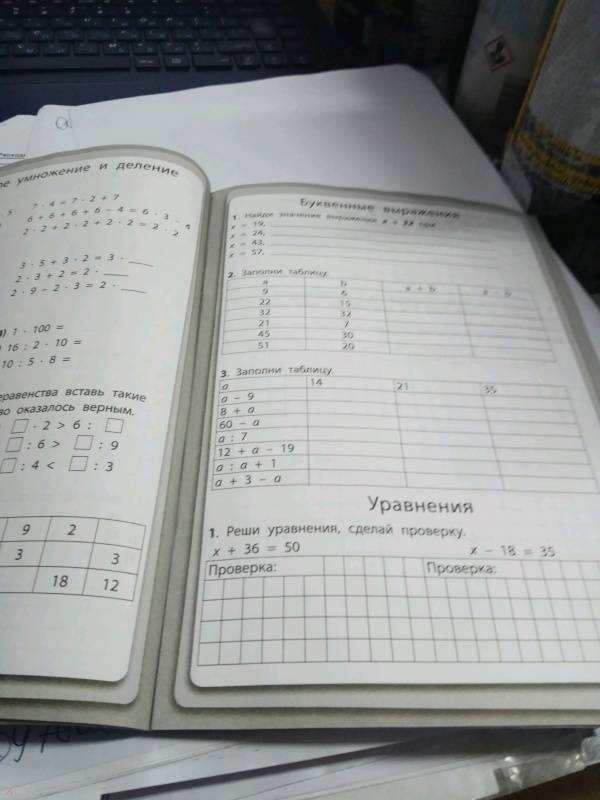 умножение и деление
7 · 4 = 7 · 2 + 7
6 + 6 + 6 + 6 - 4 = 6 · 3 -
2 · 2 + 2 · 2 + 2 · 2 = 2 · 2
3 · 5 + 3 · 2 = 3 · ____
2 · 3 + 2 = 2 · ____
2 · 9 - 2 · 3 = 2 · ____
1 · 100 =
16 : 2 · 10 =
10 : 5 · 8 =
вставь такие
оказалось верным.
· 2 > 6 :
: 6 > : 9
: 4 < : 3
9 2
3 3
18 12
Буквенные выражения
1. Найди значение выражения x + при
x = 19,
x = 24,
x = 43,
x = 57,
2. Заполни таблицу.
a b a + b a - b
9 6
22 15
32 32
21 7
45 30
51 20
3. Заполни таблицу.
a 14 21 35
a - 9
8 + a
60 - a
a : 7
12 + a - 19
a : a + 1
a + 3 - a
Уравнения
1. Реши уравнения, сделай проверку.
x + 36 = 50 x - 18 = 35
Проверка: Проверка: